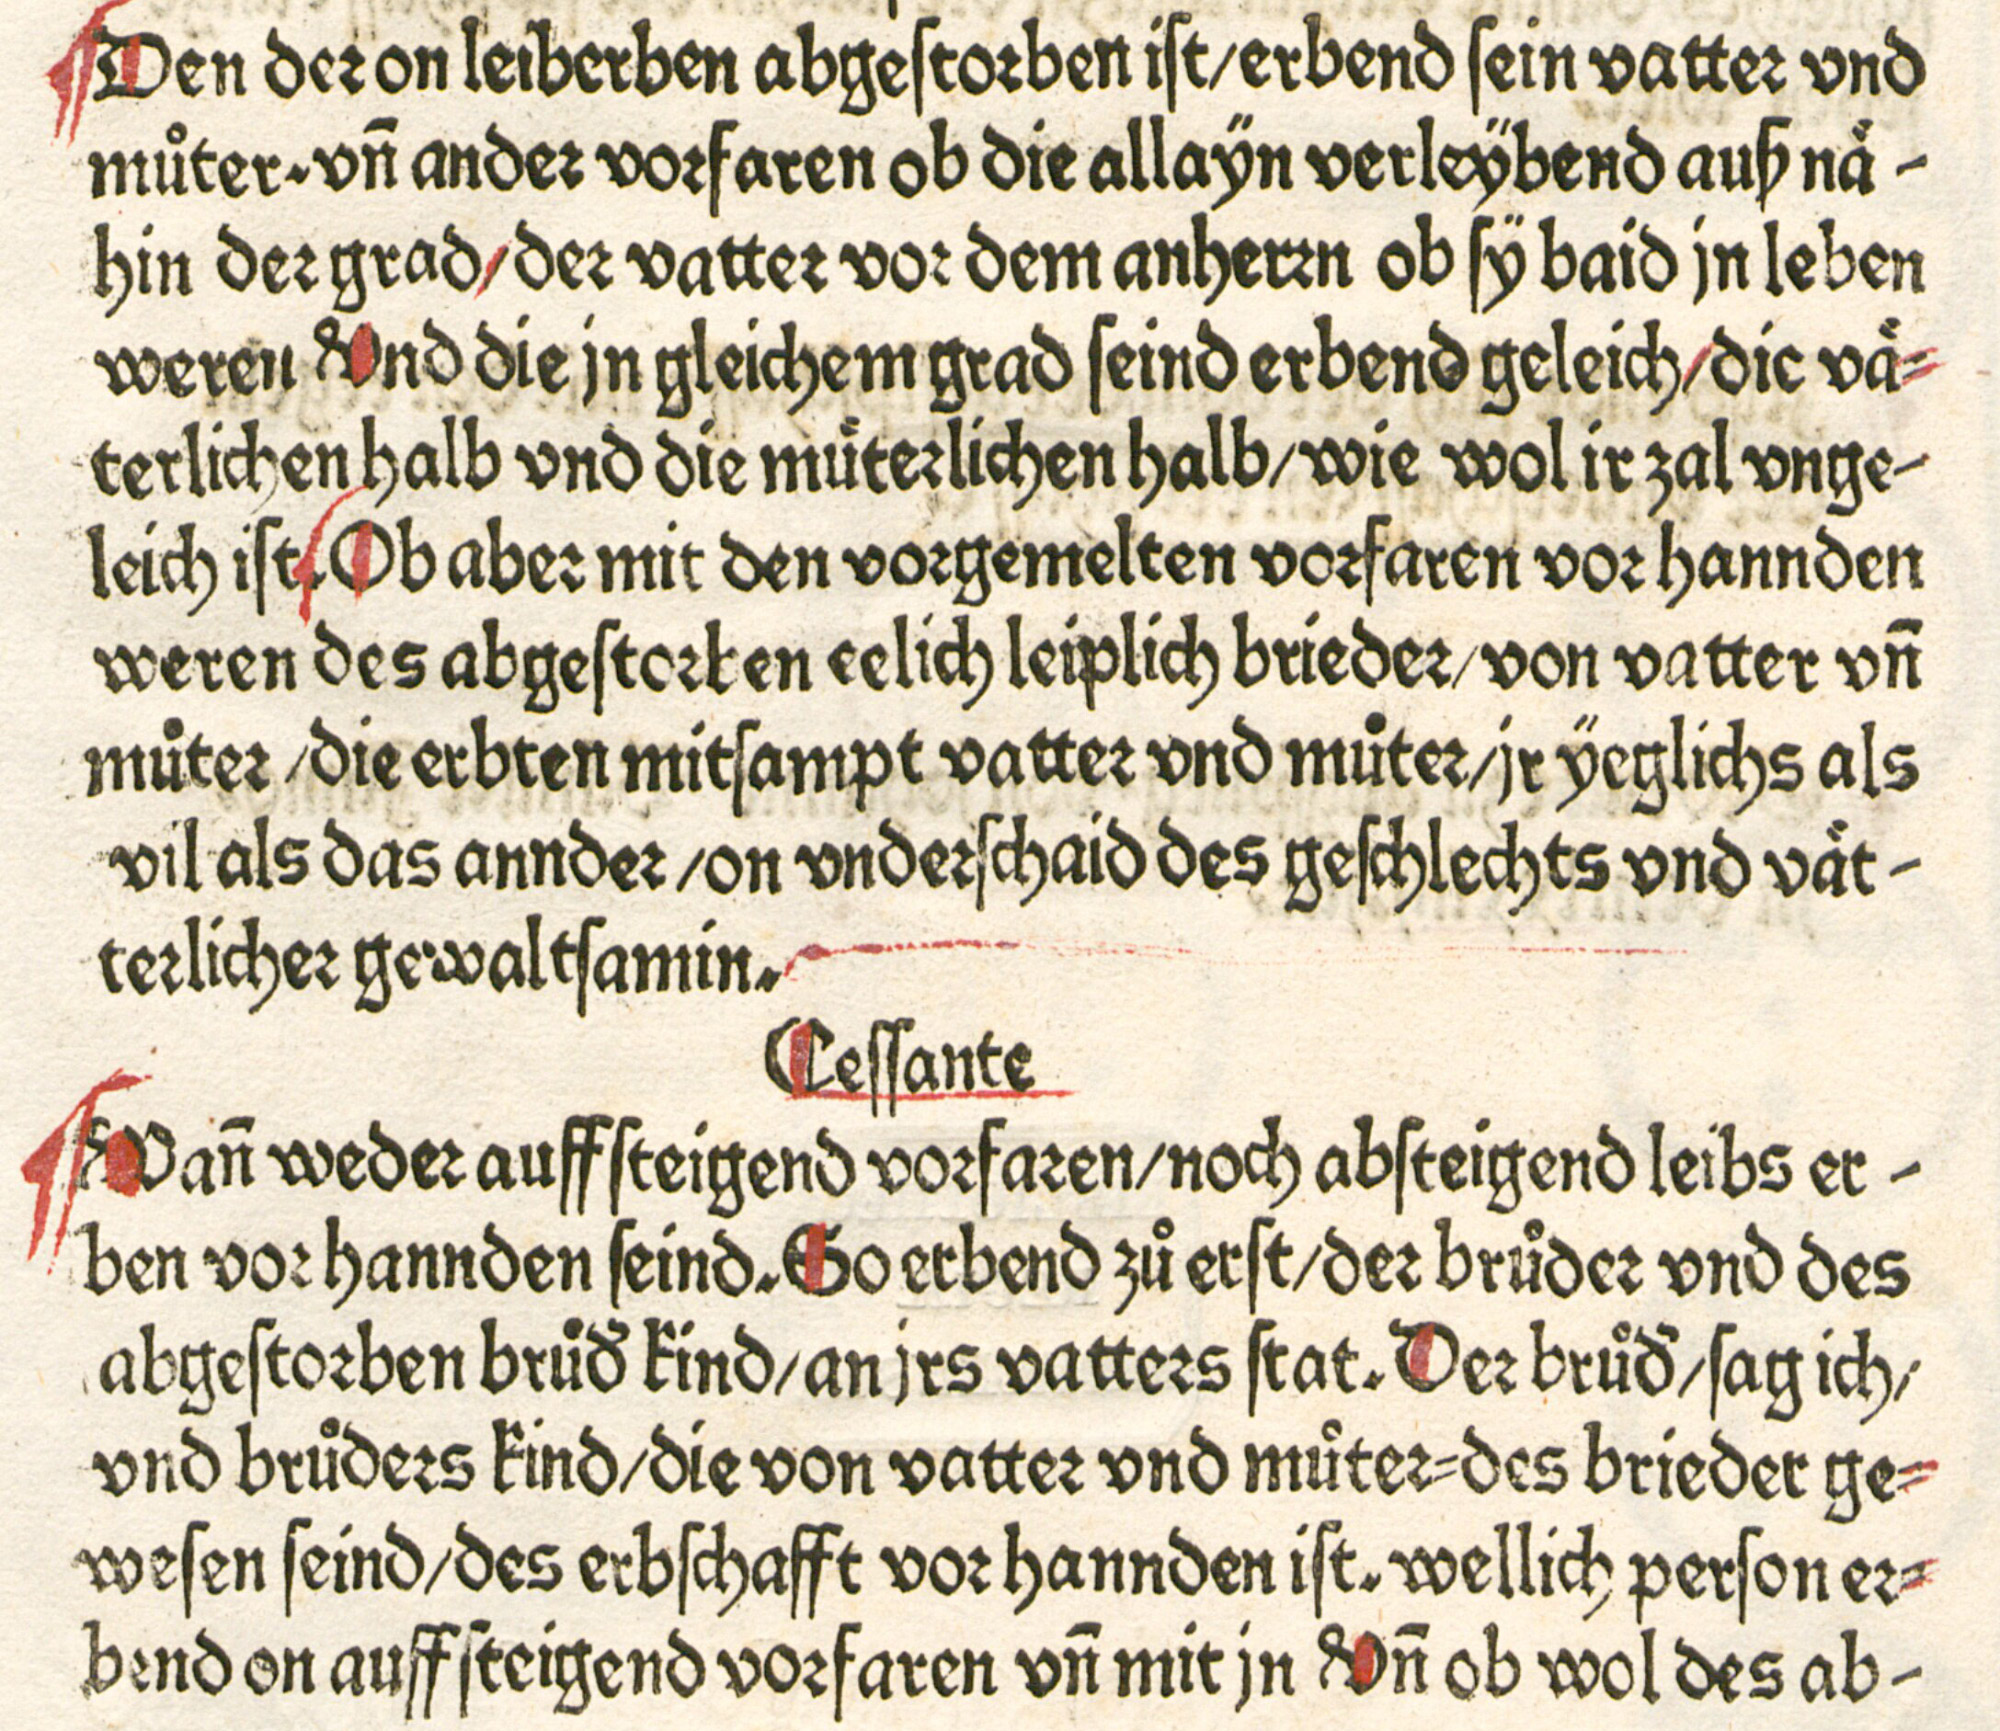 Den der on leiberben abgestorben ist/erbend sein vatter vnd
můter. vn̄ ander vorfaren ob die allaÿn verleÿbend auß naͤ-
hin der grad/der vatter vor dem anherrn ob sÿ baid jn leben
weren Vnd die jn gleichem grad seind erbend geleich/die vaͤ=
terlichen halb vnd die muͤterlichen halb/wie wol ir zal vnge-
leich ist. Ob aber mit den vorgemelten vorfaren vor hannden
weren des abgestorben eelich leiplich brieder/von vatter vn̄
můter/die erbten mitsampt vatter vnd můter/jr ÿeglichs als
vil als das annder/on vnderschaid des geschlechts vnd vaͤt-
terlicher gewaltsamin.
Cessante
Wan̄ weder auff steigend vorfaren/noch absteigend leibs er-
ben vor hannden seind. So erbend zů erst/der brůder vnd des
abgestorben brůd̕ kind/an jrs vatters stat. Der brůd̕/sag ich/
vnd brůders kind/die von vatter vnd můter=des brieder ge=
wesen seind/des erbschafft vor hannden ist. wellich person er=
bend on auff steigend vorfaren vn̄ mit jn Vn̄ ob wol des ab-